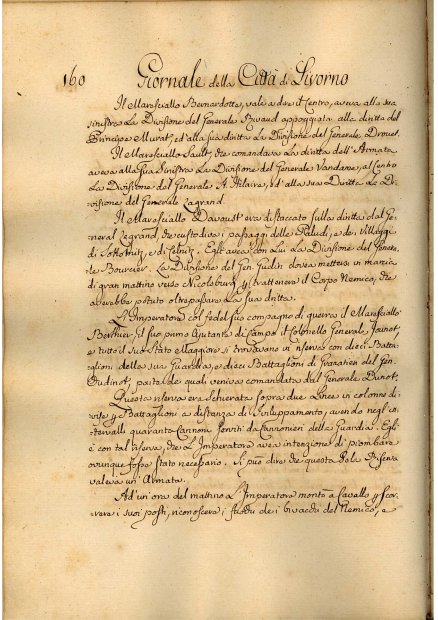 160 Giornale della Città di Livorno
Il Maresciallo Bernardotte, vale a dire il Centro, aveva alla sua
sinistra La Divisione del Generale Rivaud appoggiata alla diritta del
Principe Murat, ed alla sua diritta La Divisione del Generale Drouet.
Il Maresciallo Sault, che comandava La diritta dell'Armata
aveva alla Sua Sinistra La Divisione del Generale Vandame, al Centro
La Divisione del Generale S. Hilaire, ed alla sua Diritta La Di-
visione del Generale Legrand.
Il Maresciallo Davoust era distaccato sulla diritta dal Ge-
neral Legrand, che custodiva i passaggi delle Paludi, e de' Villaggi
di Sokolnitz, e di Celnitz. Egli aveva con Lui La Divisione del Genera-
le Bourcier. La Divisione del Gen. Gudin doveva mettersi in marcia
di gran mattino verso Nicolsburg per trattenere il Corpo Nemico, che
avrebbe potuto oltrepassare La sua dritta.
L'Imperatore col fedel suo compagno di guerra il Maresciallo
Berthier, il suo primo Ajutante di Campo il Colonello Generale Junot,
e tutto il suo Stato Maggiore si trovavano in riserva con dieci Batta-
glioni della sua Guardia, e dieci Battaglioni di Granatieri del Gen.
Oudinot, parte de quali veniva comandata dal Generale Dunot.
Questa riserva era schierata sopra due Linee in colonne di-
vise per Battaglioni a distanza di sviluppamento, avendo negl'in-
tervalli quaranta Cannoni serviti da Cannonieri della Guardia. Egli
è con tal riserva, che L'Imperatore avea intenzione di piombare
ovunque fosse stato necessario. Si può dire che questa sola Riserva
valeva un'Armata.
Ad un'ora del mattino L'Imperatore montò a Cavallo per scor-
rere i suoi posti, riconoscere i fuochi de i bivacchi del Nemico, e